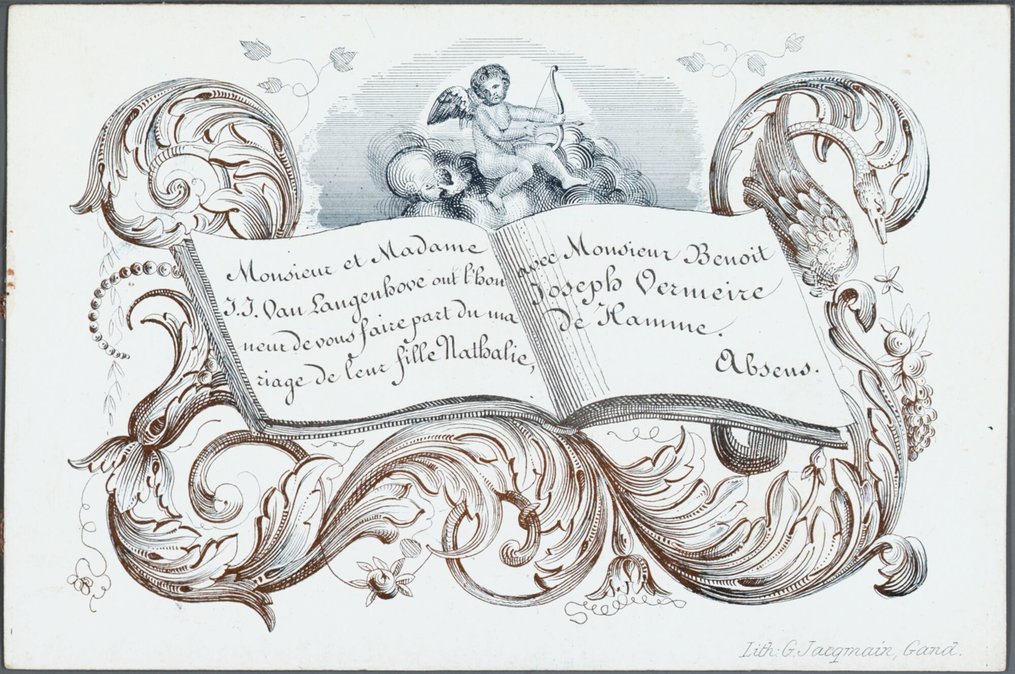 Monsieur et Madame
J.J. Van Langenhove ont l'hon
neur de vous faire part du ma
riage de leur fille Nathalie,
avec Monsieur Benoit
Joseph Vermeire
de Hamme.
Absens.
Lith: G. Jacqmain, Gand.